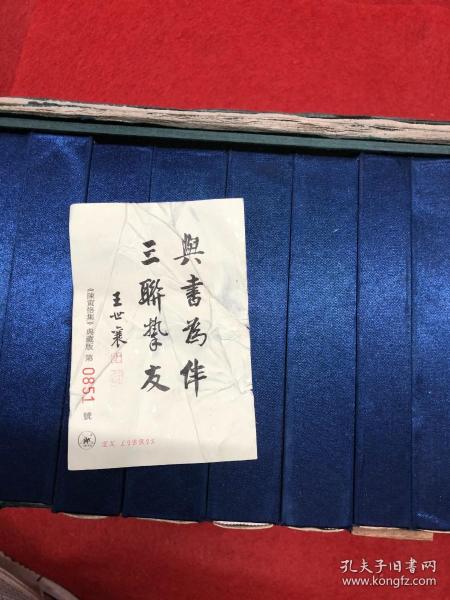 與書為伴
三聯摯友
王世襄
《陳寅恪集》典藏版 第0851號
EX LIBRIS
孔夫子旧书网
www.kongfz.com